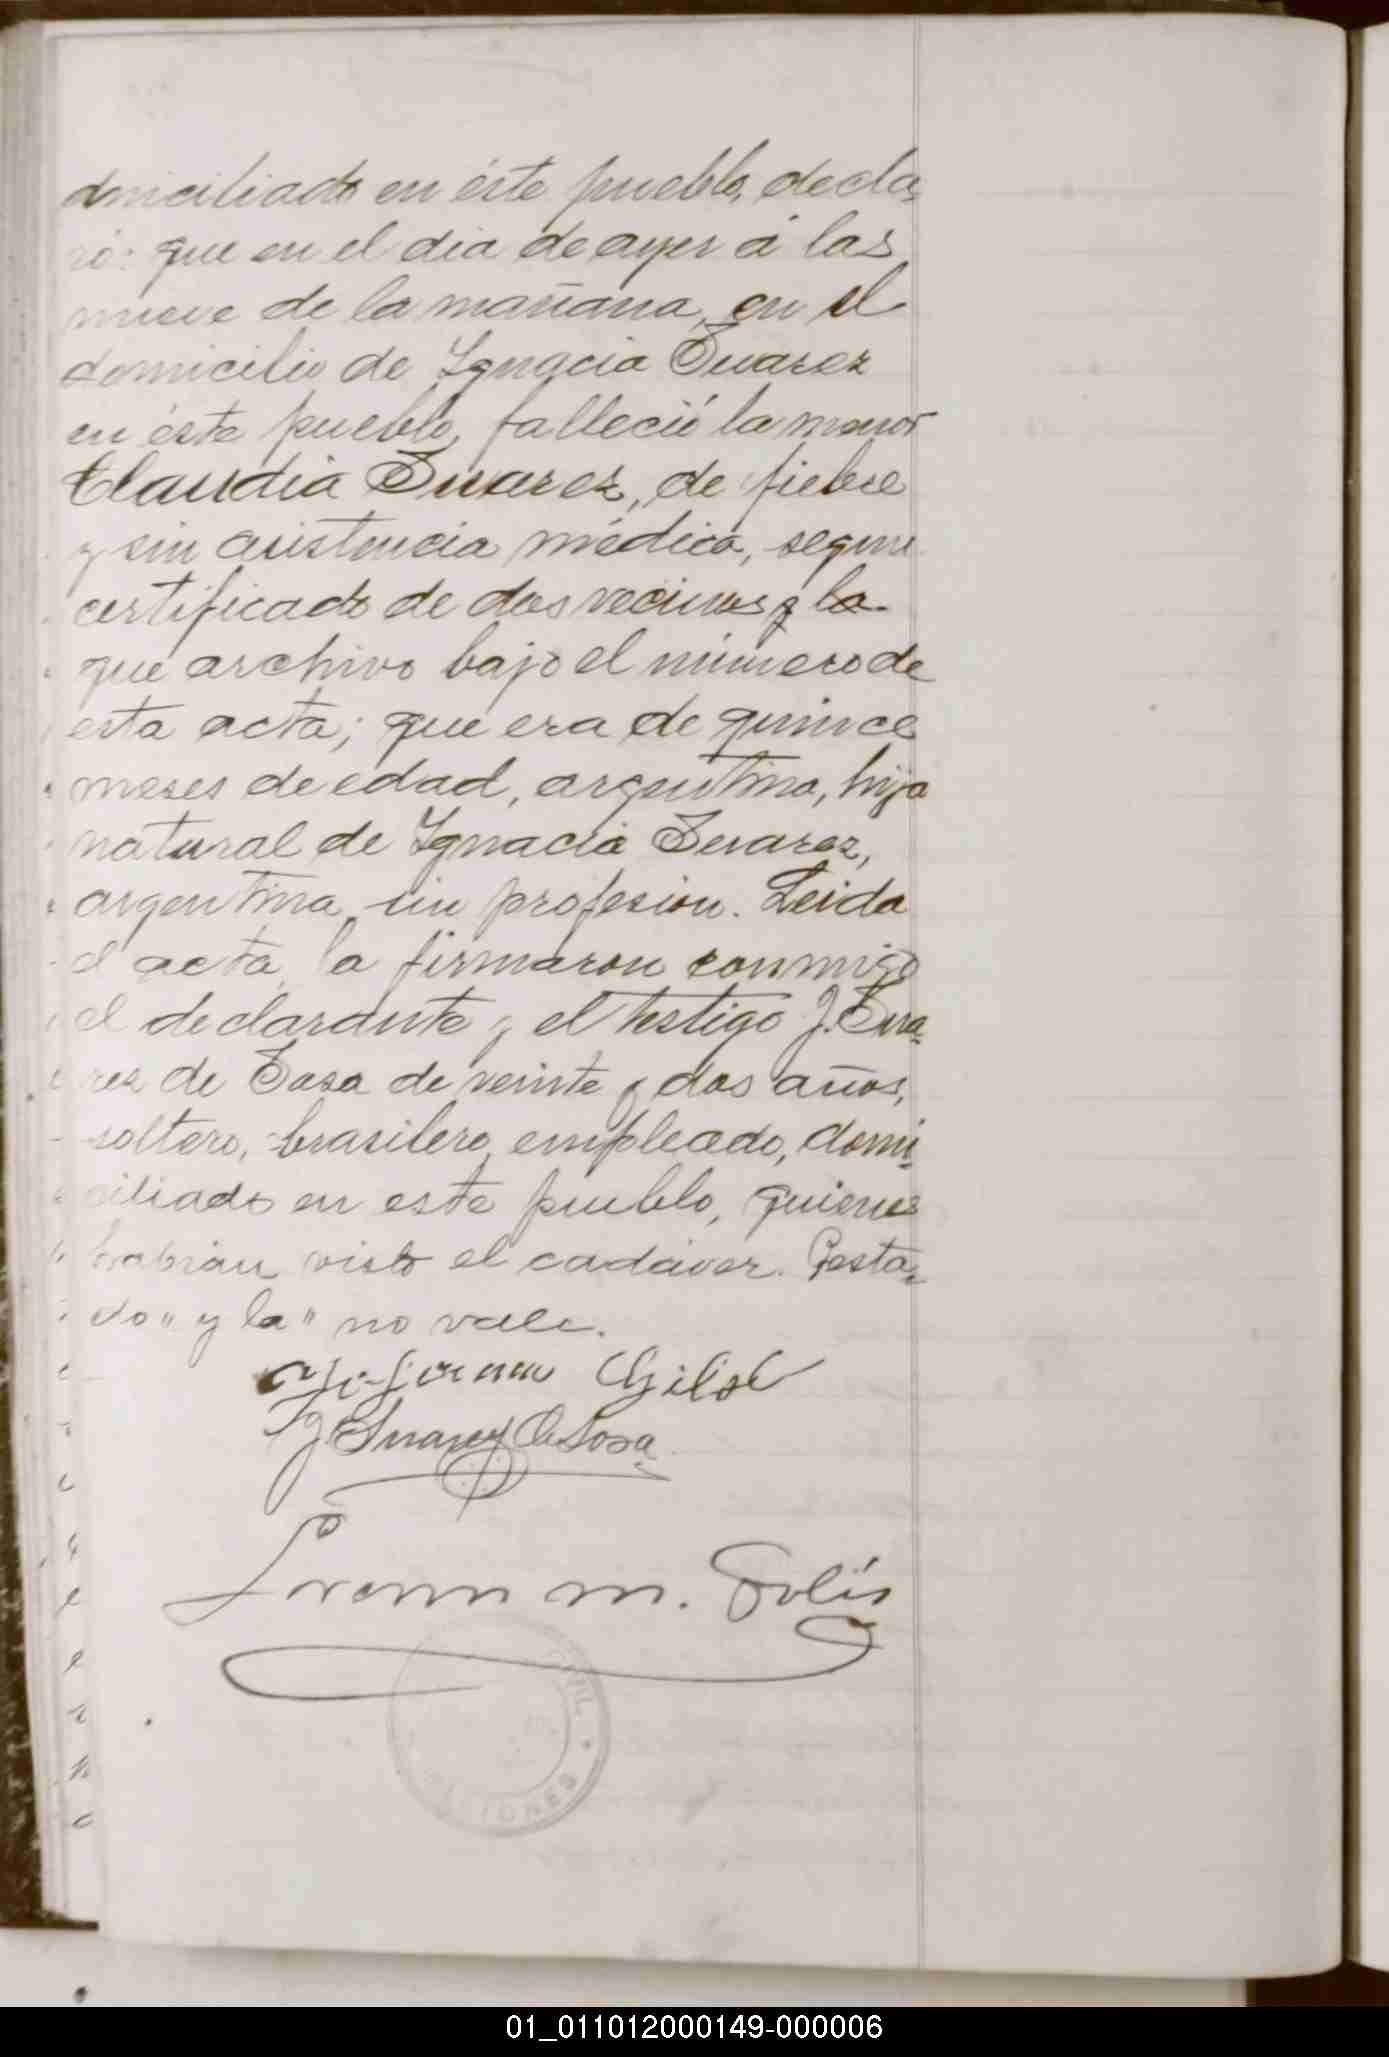 domiciliado en éste pueblo, decla-
ró: que en el dia de ayer á las
nueve de la mañana, en el
domicilio de Ignacia Suarez
en éste pueblo, falleció la menor
Claudia Suarez, de fiebre
y sin asistencia médica, segun
certificado de dos vecinos y la
que archivo bajo el número de
esta acta; que era de quince
meses de edad, argentina, hija
natural de Ignacia Suarez,
argentina, sin profesion. Leida
el acta, la firmaron conmigo
el declarante y el testigo J. Sua-
rez de Sosa de veinte y dos años,
soltero, brasilero, empleado, domi-
ciliado en este pueblo, quienes
habian visto el cadáver. Testa-
do "y la" no vale.
J Suarez de Sosa
m. Solís
CIVIL
01_011012000149-000006